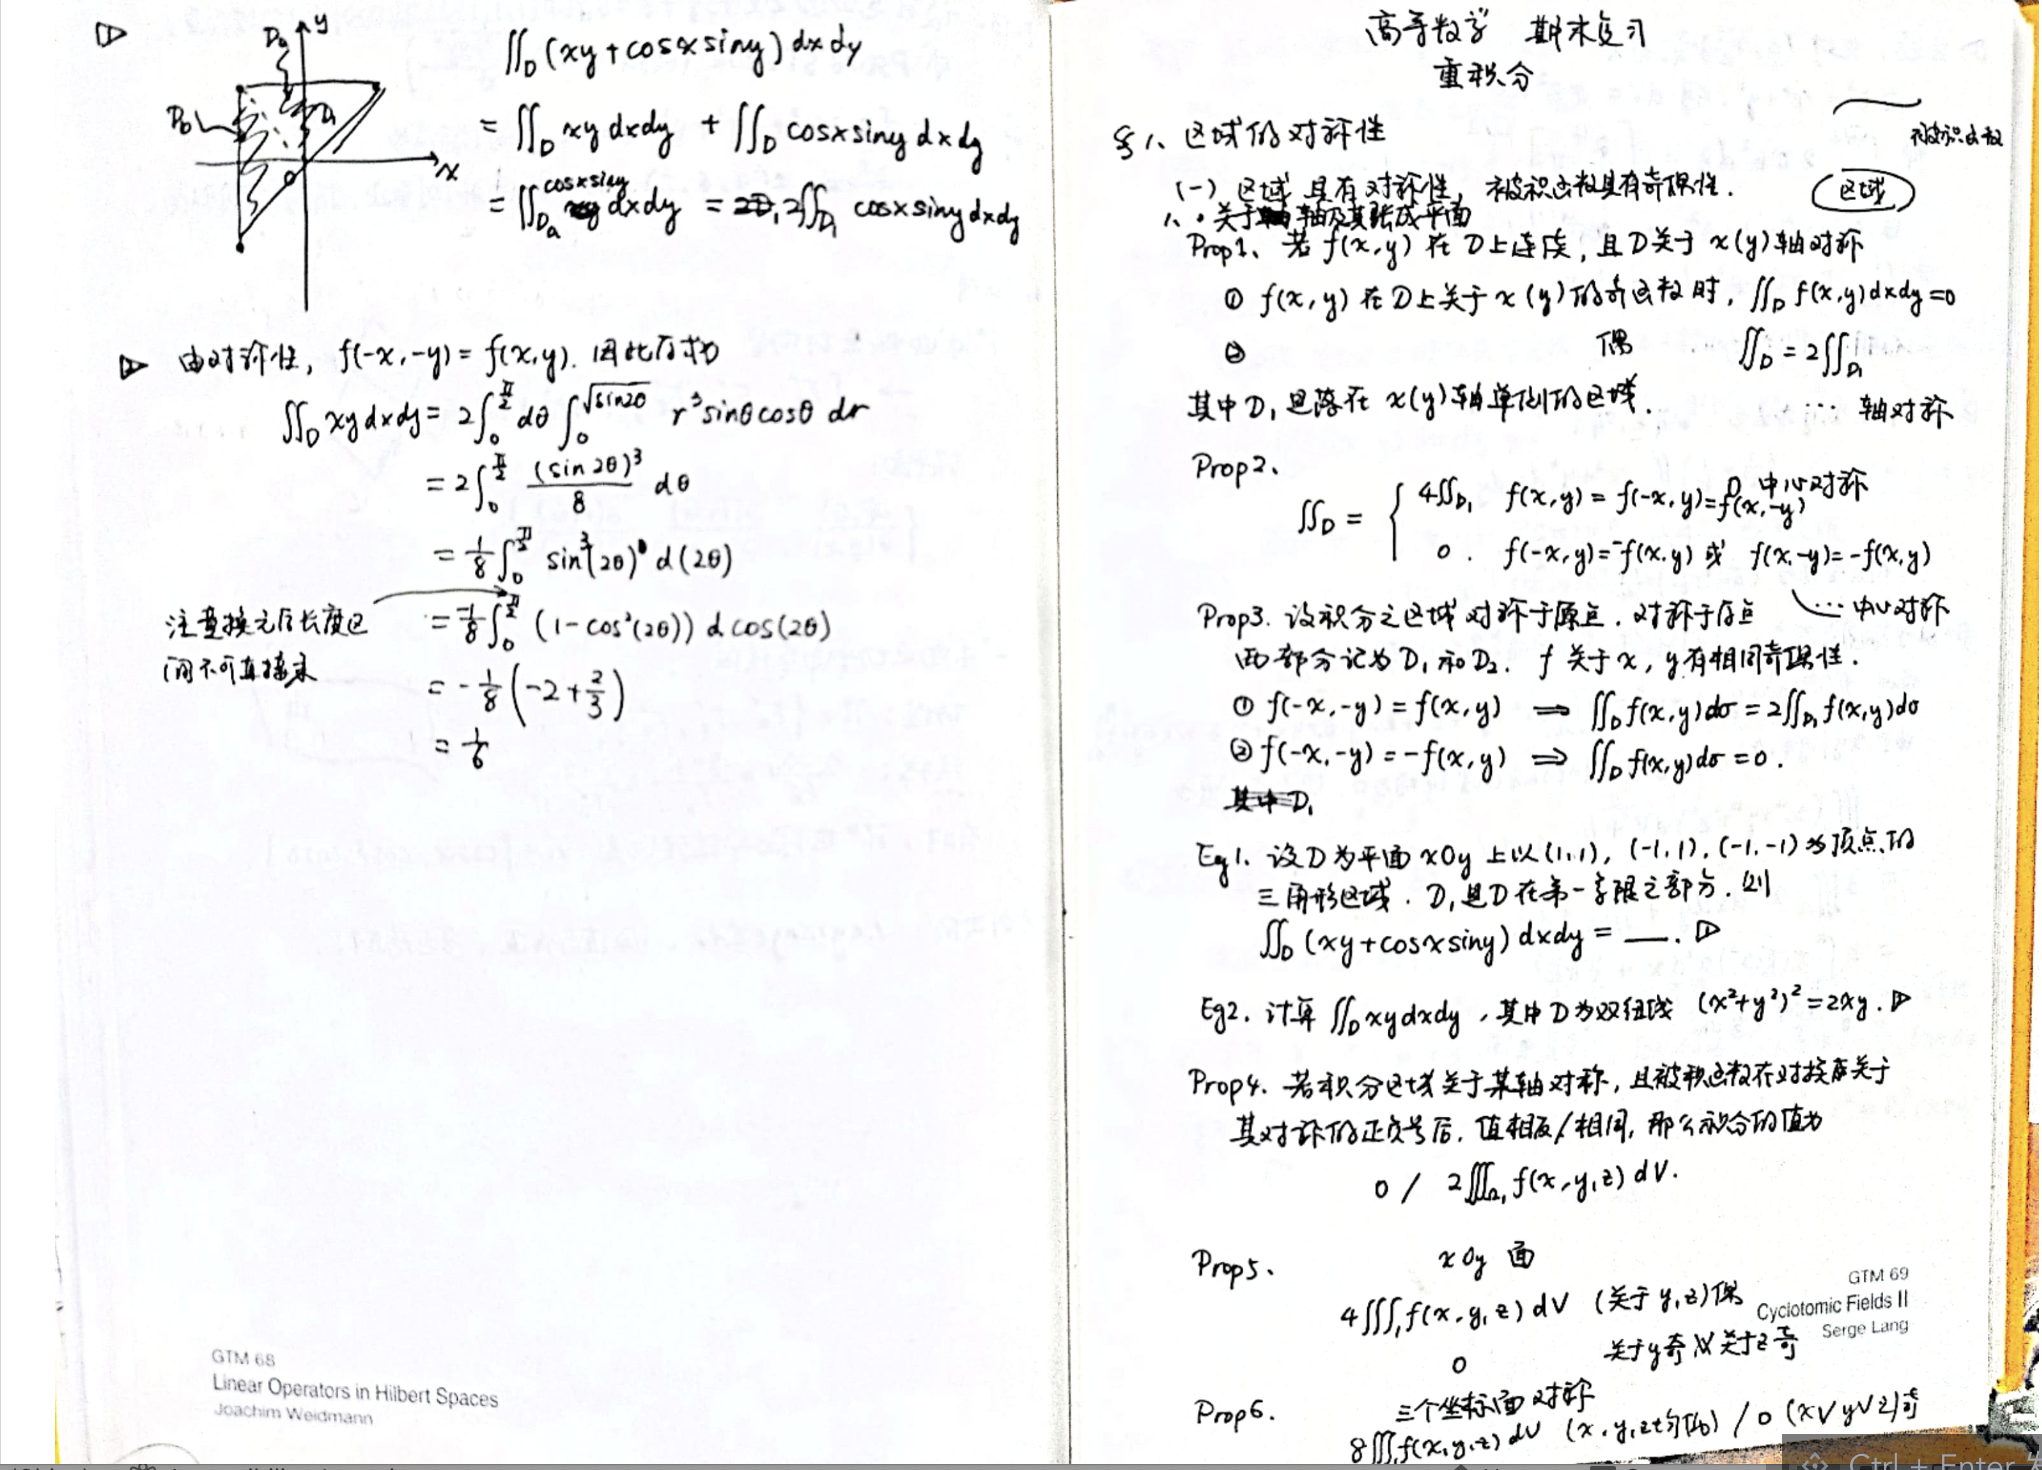 y
D₁
x
O
∬_D (xy+cosxsiny) dxdy
= ∬_D xy dxdy + ∬_D cosxsiny dxdy
= ∬_{Da} cosxsiny dxdy = 2∬_{D₁} cosxsiny dxdy
由对称性, f(-x,-y) = f(x,y). 因此
∬_D xy dxdy = 2∫₀^{π/2} dθ ∫₀^{√sin2θ} r³sinθcosθ dr
= 2∫₀^{π/2} (sin2θ)³/8 dθ
= 1/8 ∫₀^{π/2} sin³(2θ) d(2θ)
= -1/8 ∫₀^{π/2} (1-cos²(2θ)) d cos(2θ)
注意换元后长度区
间不可直接来
= -1/8 (-2+2/3)
= 1/6
GTM 68
Linear Operators in Hilbert Spaces
Joachim Weidmann
高等数学 期末复习
重积分
§1、区域的对称性
被积函数
区域
(一) 区域具有对称性, 被积函数具有奇偶性.
1、·关于轴及其张成平面
Prop1、若 f(x,y) 在 D上连续, 且D关于 x(y)轴对称
① f(x,y) 在D上关于 x(y)的奇函数时, ∬_D f(x,y)dxdy=0
② 偶 ∬_D = 2∬_{D₁}
其中D₁是落在 x(y)轴单侧的区域.
… 轴对称
Prop2、
D 中心对称
∬_D = { 4∬_{D₁} f(x,y) = f(-x,y)=f(x,-y)
0. f(-x,y)=-f(x,y) 或 f(x,-y)=-f(x,y)
… 中心对称
Prop3. 设积分之区域对称于原点. 对称于原点
两部分记为D₁和D₂. f 关于x, y有相同奇偶性.
① f(-x,-y) = f(x,y) ⟹ ∬_D f(x,y)dσ = 2∬_{D₁} f(x,y)dσ
② f(-x,-y) = -f(x,y) ⟹ ∬_D f(x,y)dσ = 0.
其中D₁
Eg1. 设D为平面xOy上以(1,1), (-1,1), (-1,-1)为顶点的
三角形区域. D₁是D在第一象限之部分. 则
∬_D (xy+cosxsiny) dxdy = __.
Eg2. 计算 ∬_D xydxdy, 其中D为双纽线 (x²+y²)²=2xy.
Prop4. 若积分区域关于某轴对称, 且被积函数在对换关于
其对称的正负号后, 值相反/相同, 那么积分的值为
0 / 2∭_{Ω₁} f(x,y,z) dV.
Prop5、 xOy 面
4∭₁ f(x,y,z) dV (关于 y,z)偶
0 关于y奇 关于z奇
GTM 69
Cyclotomic Fields II
Serge Lang
Prop6. 三个坐标面对称
8∭₁ f(x,y,z) dV (x,y,z均偶) / 0 (x∨y∨z)奇
Ctrl + Enter